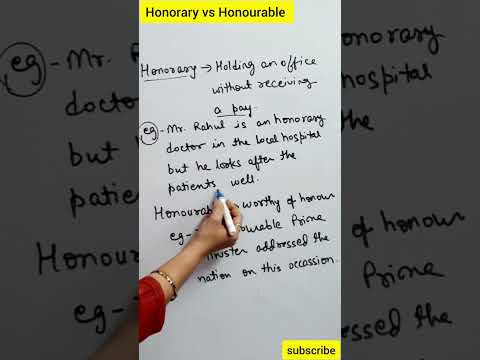 Honorary vs Honourable
Honorary → Holding an office
without receiving
a pay.
eg - Mr. Rahul is an honorary
doctor in the local hospital
but he looks after the
patients well.
worthy of honour
eg - Prime
addressed the
nation on this occassion.
subscribe